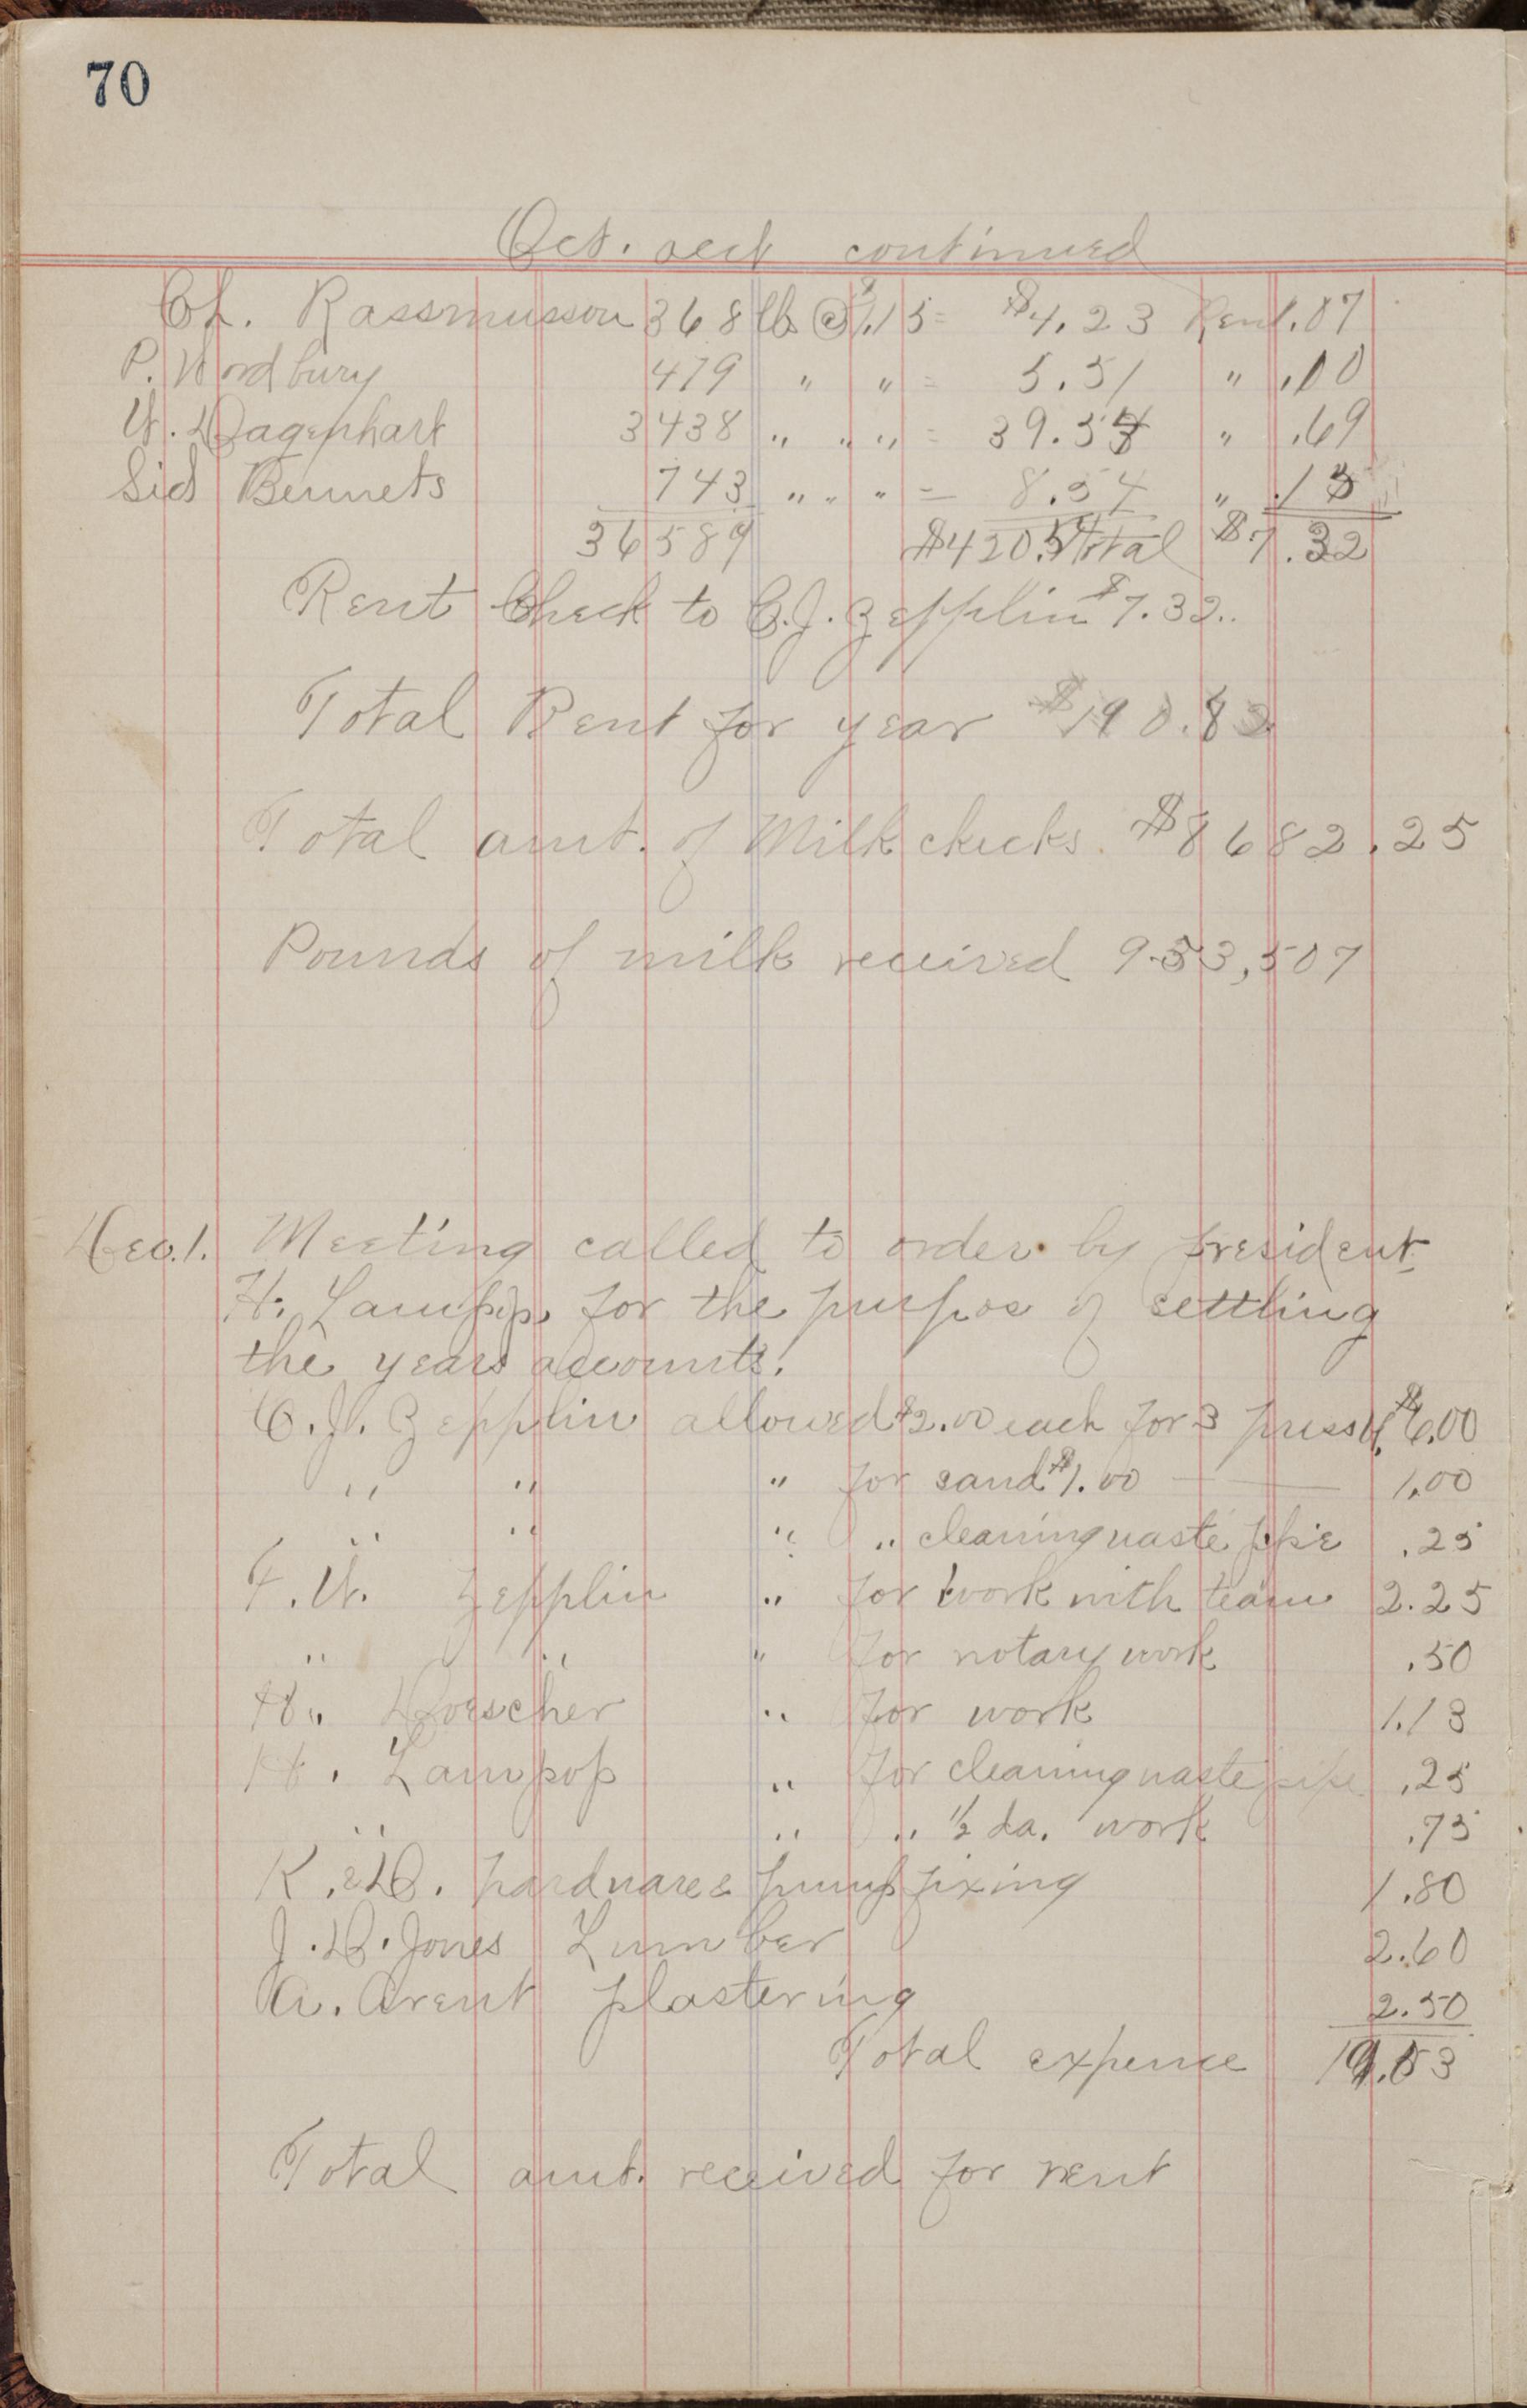 70
Oct. acct continued
Ch. Rassmusson 368 lb @ $1.15 = $4.23 Rent .07
P. Wordbury 479 " " = 5.51 " .10
W. Dagephart 3438 " " " = 39.54 " .69
Sid Bennets 743 " " " = 8.54 " .15
36589 $420. Total $7.32
Rent Check to C.J. Zepplin $7.32.
Total Rent for year $190.82
Total amt. of Milk checks. $8682.25
Pounds of milk received 953,507
Dec. 1. Meeting called to order by president
H. Lampop for the purpose of settling
the years accounts.
C. J. Zepplin allowed $2.00 each for 3 press $6.00
" " " for sand $1.00 1.00
" " " " cleaning waste pipe .25
F. W. Zepplin " for work with team 2.25
" " " for notary work .50
H. Doescher " for work 1.13
H. Lampop " for cleaning waste pipe .25
" " " 1/2 da. work .75
K. & D. hardware & pump fixing 1.80
J. D. Jones Lumber 2.60
A. Arent plastering 2.50
Total expence 19.03
Total amt. received for rent